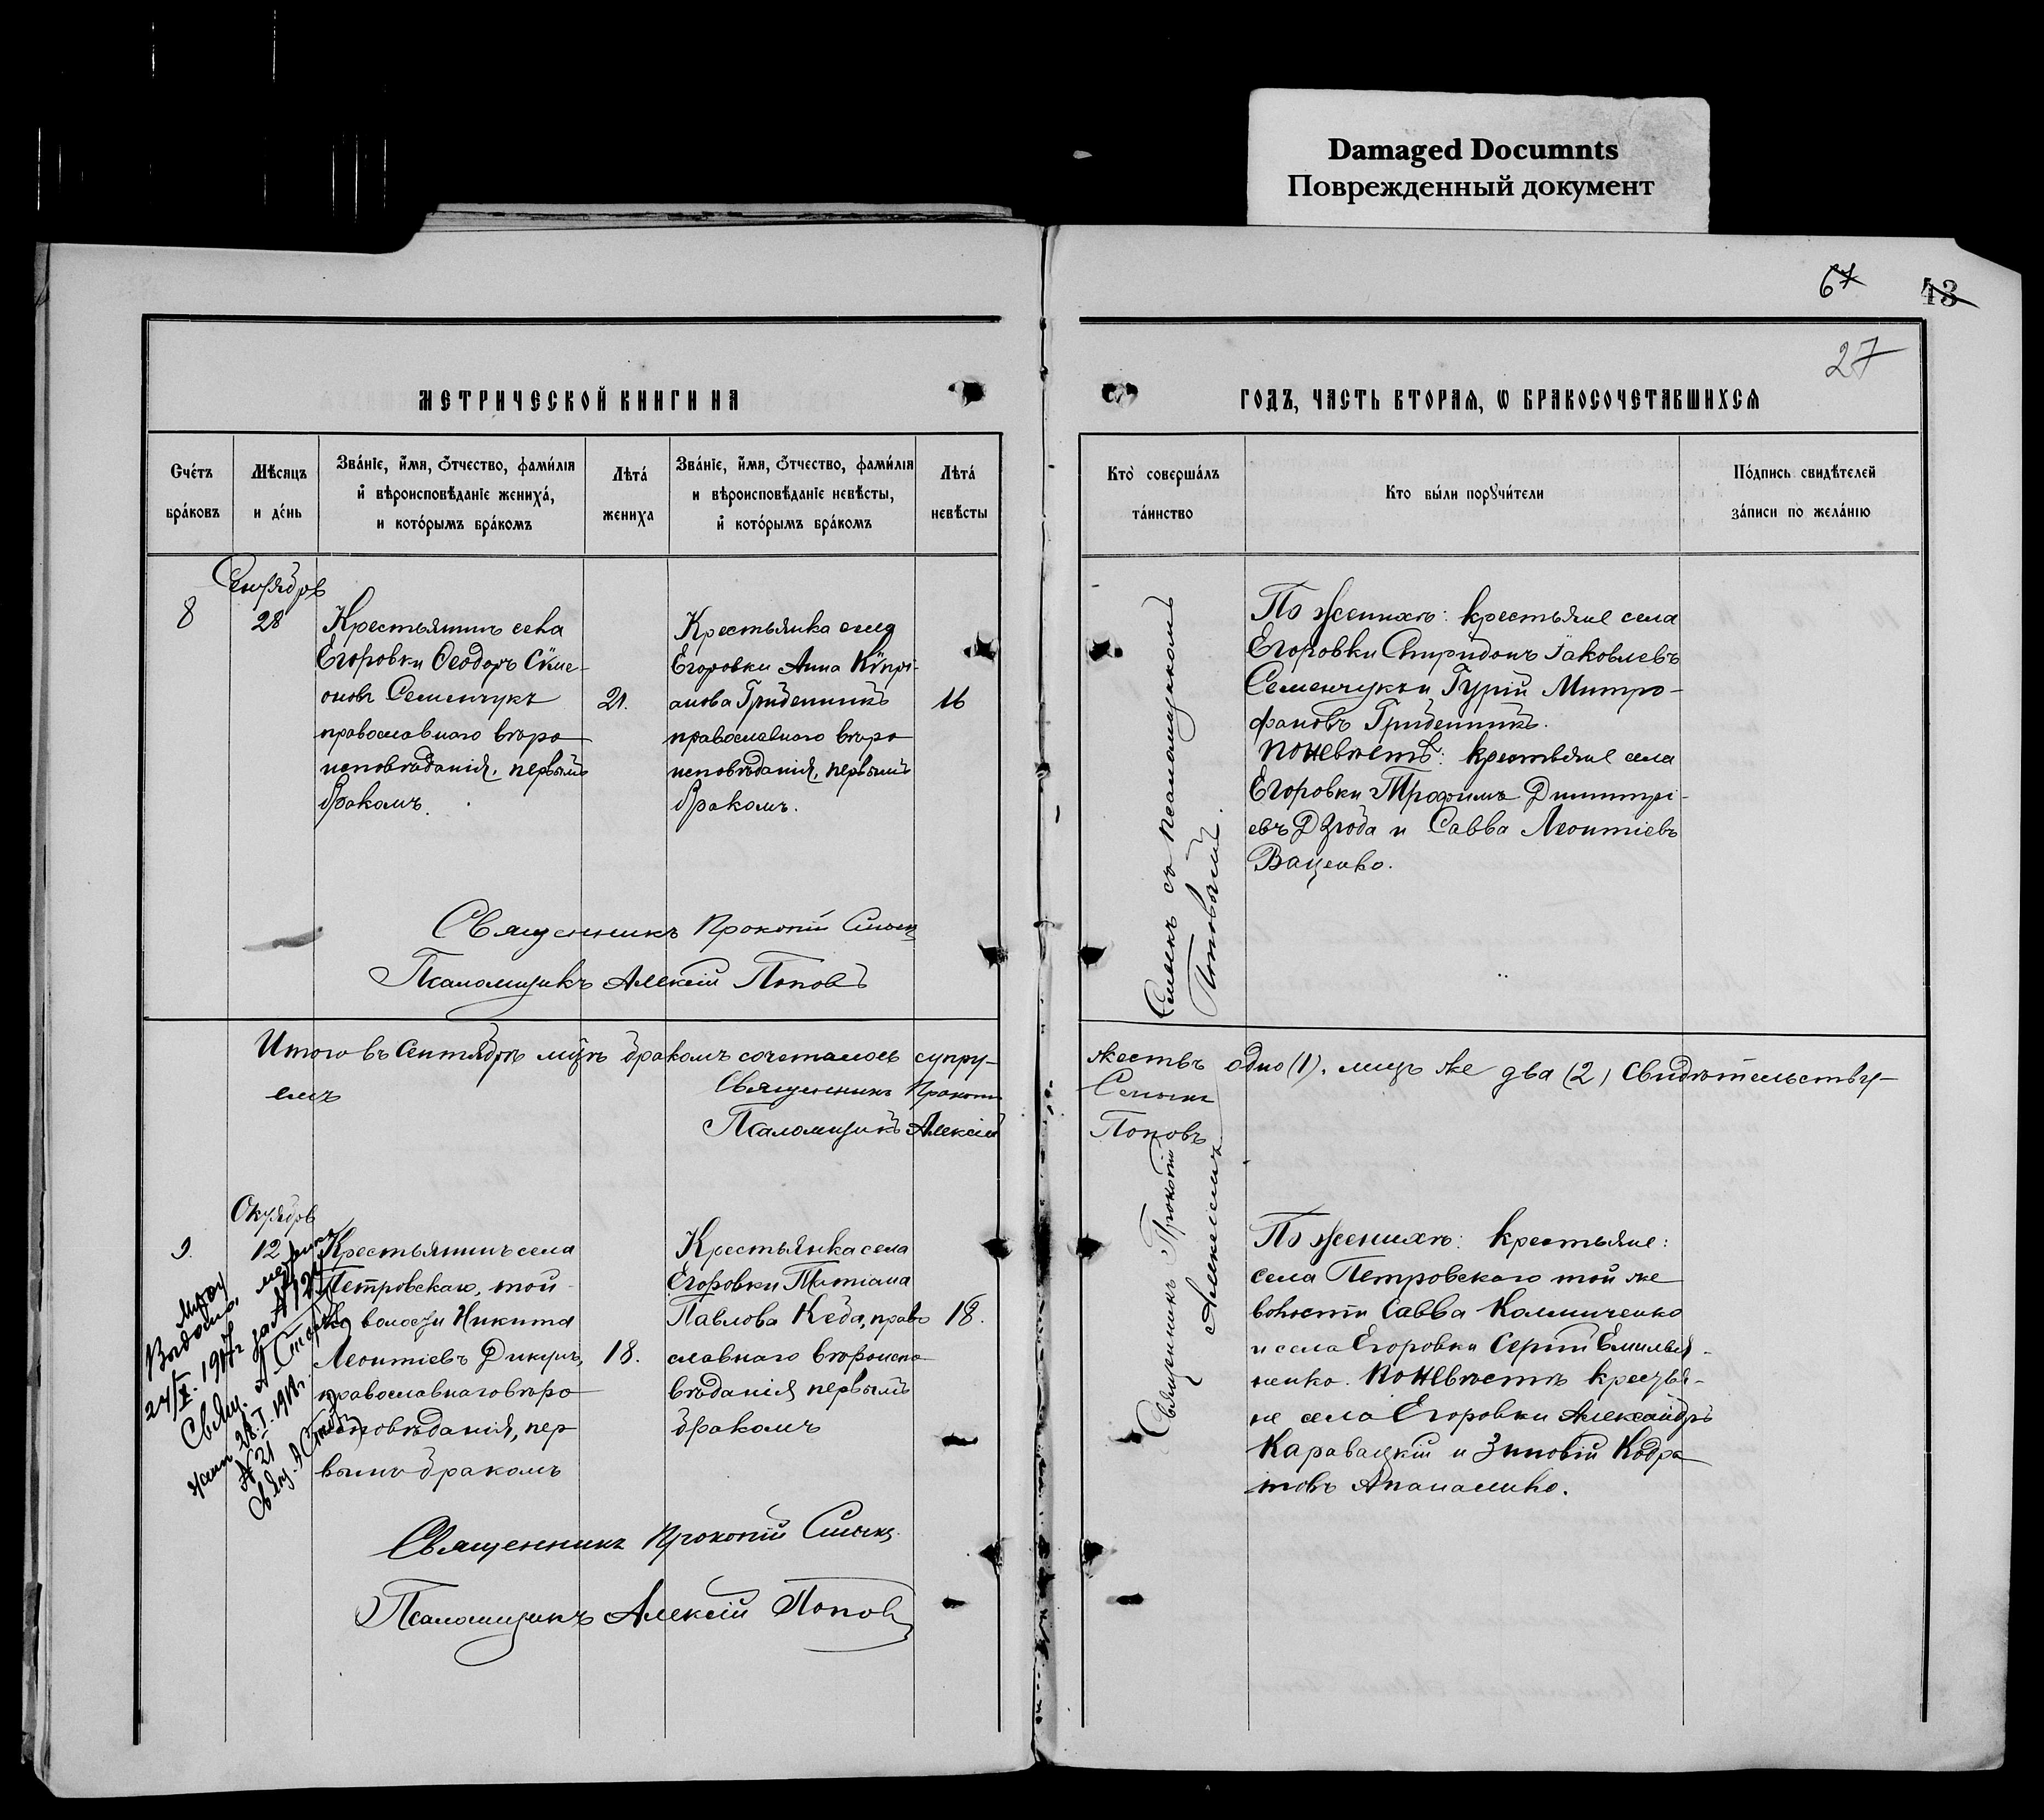 Damaged Documnts
Поврежденный документ
67
43
27
МЕТРИЧЕСКОЙ КНИГИ НА
ГОДЪ, ЧАСТЬ ВТОРАЯ, Ѡ БРАКОСОЧЕТАВШИХСЯ
Счéтъ брáковъ
Мѣ́сяцъ и дéнь
Звáнїе, и́мя, ѻ́тчество, фами́лїя
и҆ вѣроисповѣ́данїе женихá,
и котóрымъ брáкомъ
Лѣтá жениха
Звáнїе, и́мя, ѻ́тчество, фами́лїя
и вѣроисповѣ́данїе невѣ́сты,
и҆ котóрымъ брáкомъ
Лѣтá невѣ́сты
Кто̀ совершáлъ тáинство
Кто бы́ли порꙋчи́тели
Пóдпись свидѣ́телей
зáписи по желáнїю
8
28
Крестьянинъ села
Егоровки Ѳеодоръ Сѵме-
оновъ Семенчукъ
православнаго вѣро
исповѣданія, первымъ
бракомъ.
21.
Крестьянка села
Егоровки Анна Кѵпрі-
анова Гриденникъ
православнаго вѣро
исповѣданія, первымъ
бракомъ.
16
съ псаломщикомъ
Поповымъ.
По женихѣ: крестьяне села
Егоровки Спиридонъ Іаковлевъ
Семенчукъ и Гурій Митро-
фановъ Гриденникъ.
По невѣстѣ: крестьяне села
Егоровки Трофимъ Димитрі-
евъ Дзюба и Савва Леонтіевъ
Ваценко.
Священникъ Прокопій
Псаломщикъ Алексій Поповъ
Итого въ Сентябрѣ мцѣ бракомъ сочеталось супру-
жествъ одно (1), лицъ же два (2) свидѣтельству-
емъ
Священникъ Прокопій
Псаломщикъ Алексій Поповъ
Октябрь
9.
12
Крестьянинъ села
Петровскаго, той
же волости Никита
Леонтіевъ Дикунъ,
православнаго вѣро
исповѣданія, пер
вымъ бракомъ
18.
Крестьянка села
Егоровки Татіана
Павлова Кеда, право
славнаго вѣроиспо
вѣданія первымъ
бракомъ
18.
Священникъ Прокопій
По женихѣ: крестьяне:
села Петровскаго той же
волости Савва Калиниченко
и села Егоровки Сергій Емилья-
ненко. По невѣстѣ крестья-
не села Егоровки Александръ
Каравацкій и Зиновій Кодра
товъ Апанасенко.
Выдана метрика
24/X. 1917 г. за №124
Свящ. А.
28.I.1918 г.
№ 21
Свящ. А.
Священникъ Прокопій
Псаломщикъ Алексій Поповъ